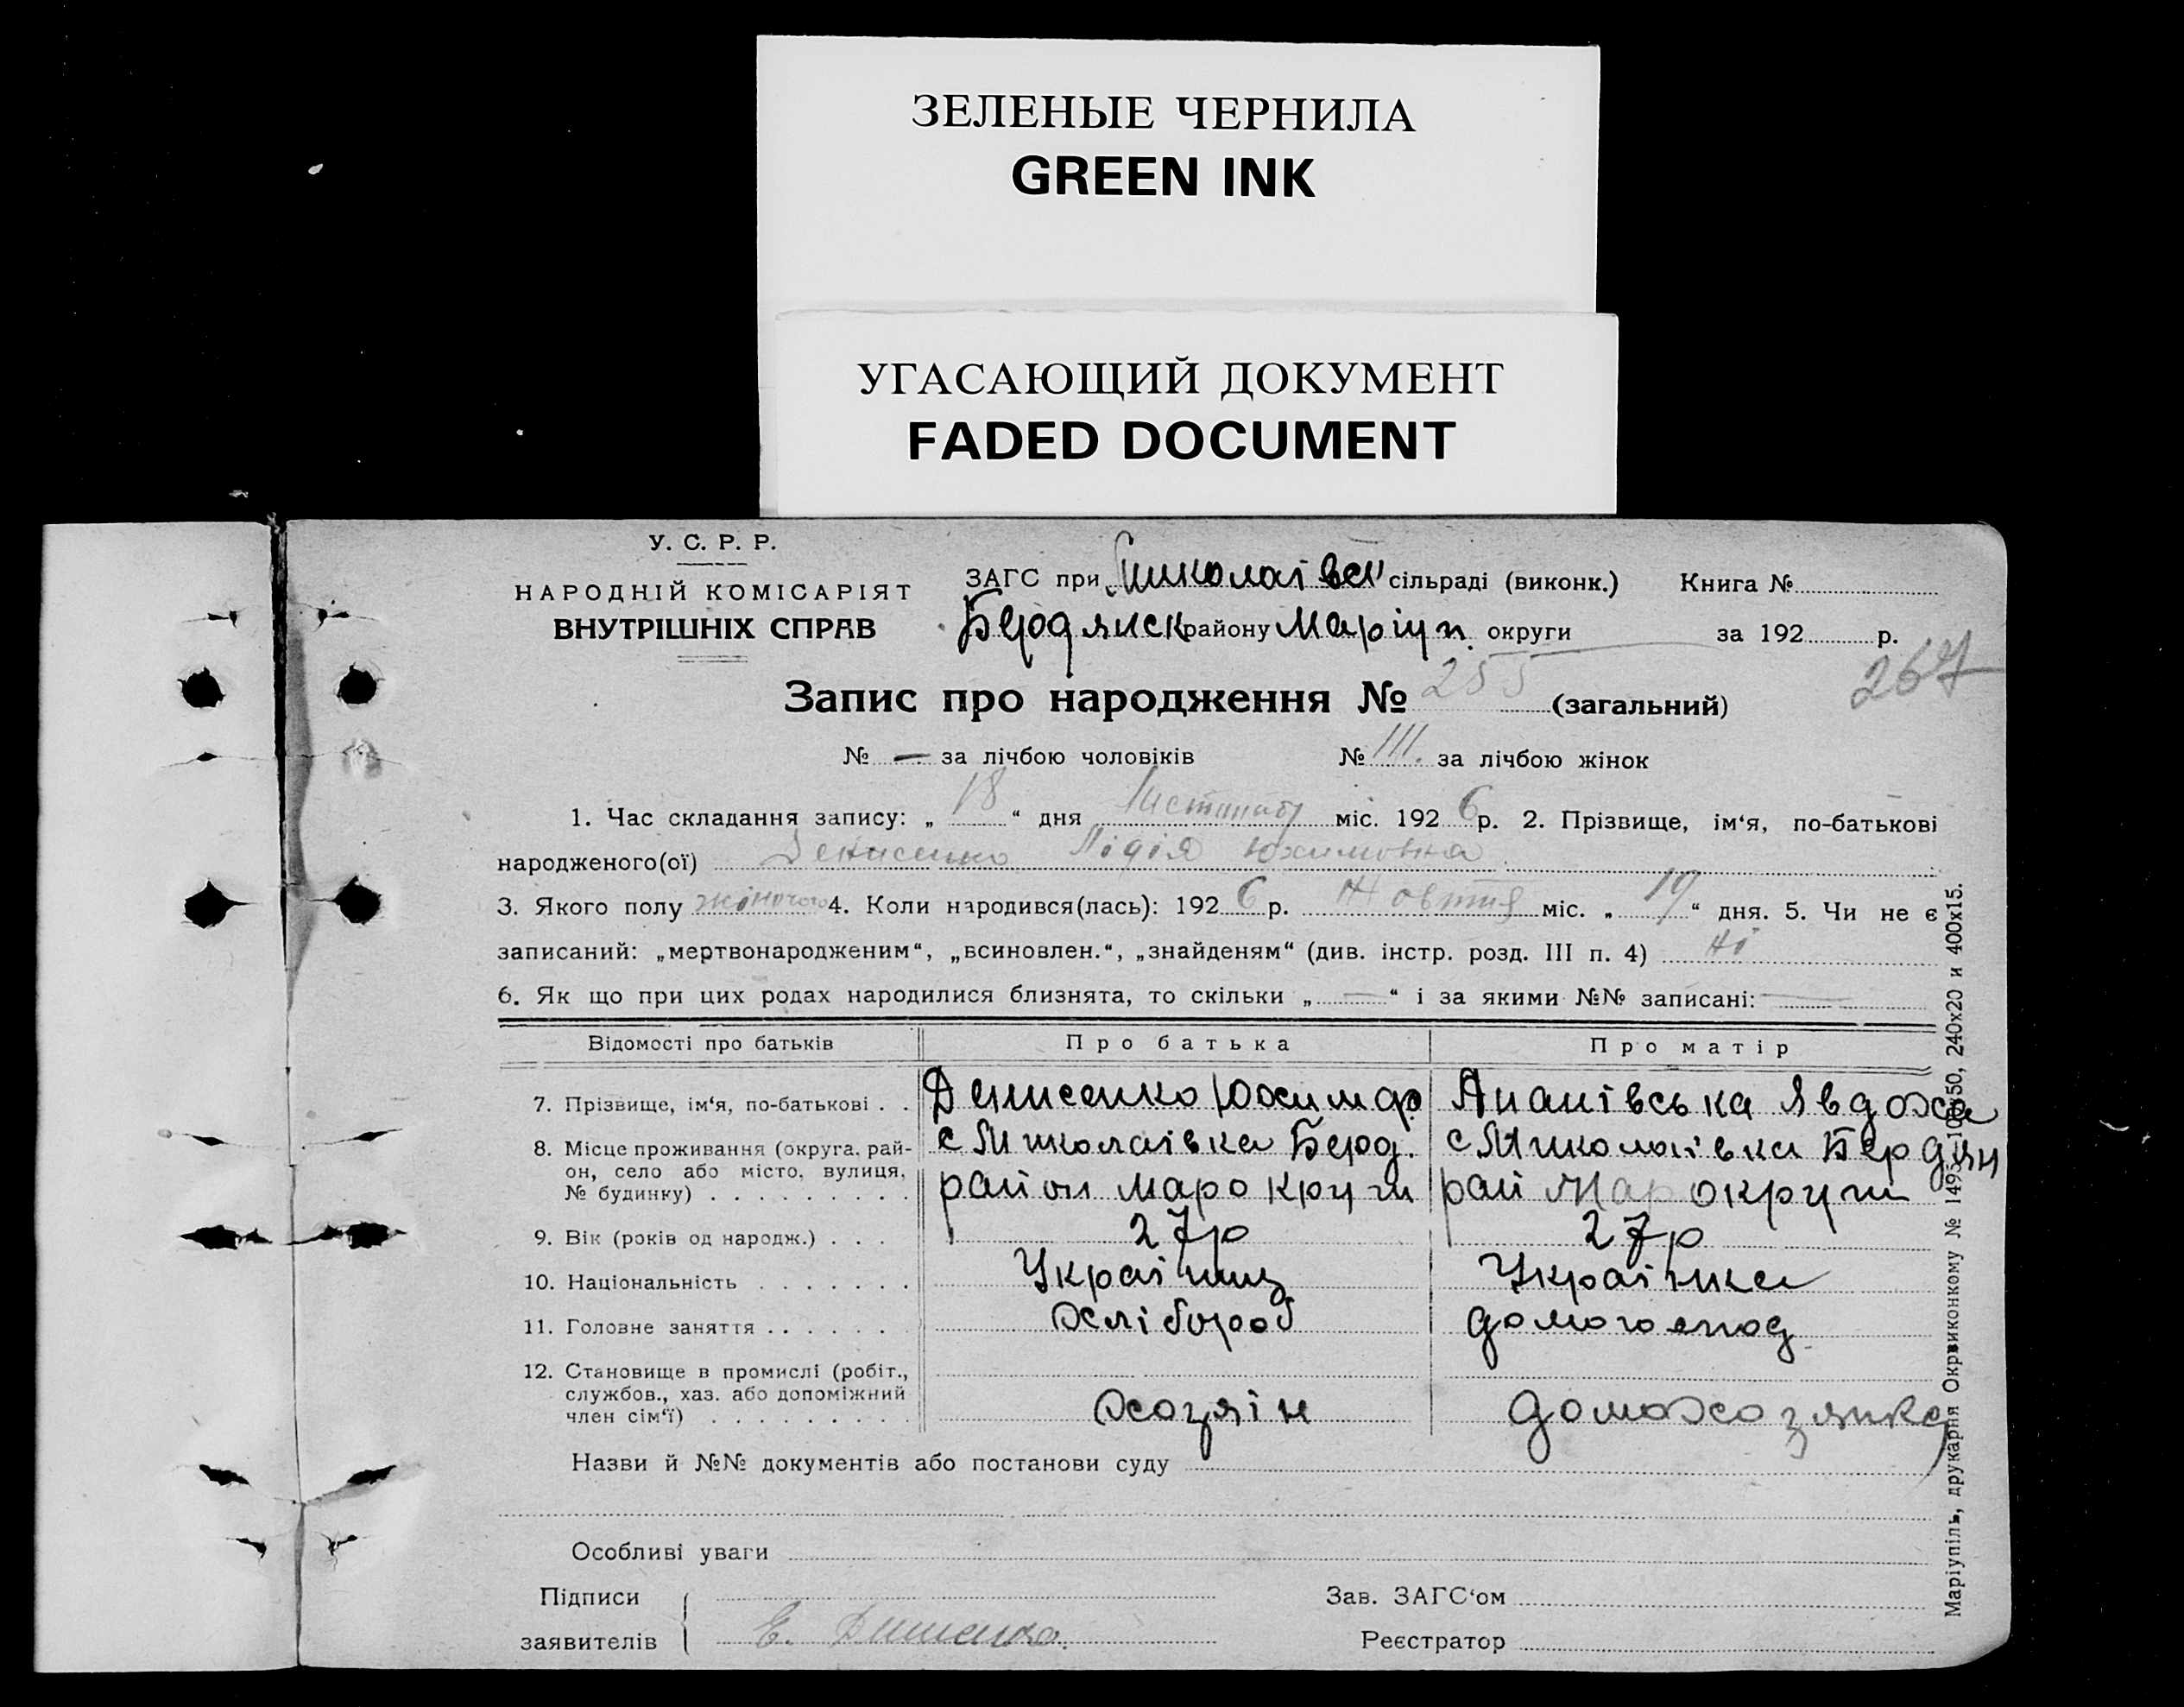 ЗЕЛЕНЫЕ ЧЕРНИЛА
GREEN INK
УГАСАЮЩИЙ ДОКУМЕНТ
FADED DOCUMENT
У. С. Р. Р.
НАРОДНІЙ КОМІСАРІЯТ
ВНУТРІШНІХ СПРАВ
ЗАГС при Миколаівск сільраді (виконк.) Книга №
Бердянск району Маріуп. округи за 192 р.
267
Запис про народження № 255 (загальний)
№ — за лічбою чоловіків № 111. за лічбою жінок
1. Час складання запису: „ 18 “ дня Листопаду міс. 192 6 р. 2. Прізвище, ім‘я, по-батькові
народженого(ої) Денисенко Лідія Юхимовна
3. Якого полу жіночого 4. Коли народився(лась): 192 6 р. Жовтня міс. „ 19 “ дня. 5. Чи не є
записаний: „мертвонародженим“, „всиновлен.“, „знайденям“ (див. інстр. розд. III п. 4) ні
6. Як що при цих родах народилися близнята, то скільки „ — “ і за якими №№ записані: —
Відомості про батьків Про батька Про матір
7. Прізвище, ім‘я, по-батькові . . Денисенко Юхим Ф. Ананівська Явдоха
8. Місце проживання (округа, рай- с Миколаівка Берд. с Миколаівка Бердян
он, село або місто, вулиця,
№ будинку) . . . . . . . . . район Мар округи рай Мар округи
9. Вік (років од народж.) . . . 27р 27р
10. Національність . . . . . . . Украіниц Украінка
11. Головне заняття . . . . . . Хлібороб домогоспод
12. Становище в промислі (робіт.,
службов., хаз. або допоміжний
член сім‘ї) . . . . . . . . . хозяін домохозяйка
Назви й №№ документів або постанови суду
Особливі уваги
Підписи Зав. ЗАГС‘ом
заявителів Е. Денисенко. Реєстратор
Маріупіль, друкарня Окрвиконкому № 1495—100x50, 240x20 и 400x15.